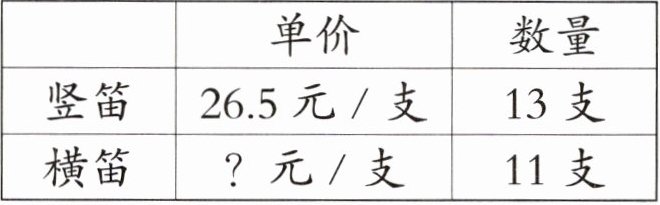 单价 数量
竖笛 26.5 元 / 支 13 支
横笛 ? 元 / 支 11 支